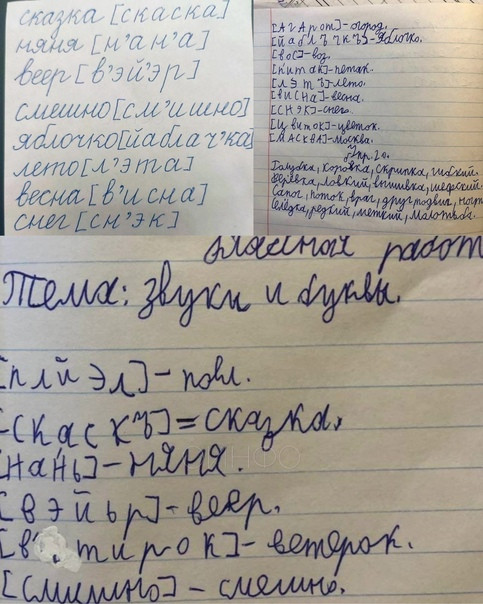 сказка [скаска]
няня [н'ан'а]
веер [в'эй'эр]
смешно [см'ишно]
яблочко [йаблач'ка]
лето [л'эта]
весна [в'исна]
снег [сн'эк]
[АгАрот]-огород.
[йаблъчкъ]-Яблочко.
[вос]-воз.
[питак]-пятак.
[лэтъ]-лето.
[висна]-весна.
[снэк]-снег.
[цвиток]-цветок.
[МАсквА]-Москва.
Упр. 20.
Голубка, Коровка, Скрипка, гибкий.
Верёвка, ловкий, вышивка, шефский.
Сапог, поток, враг, друг, подвиг,
Селёдка, редкий, меткий, Молотьба.
классная работ
Тема: звуки и буквы.
[плйэл]-поел.
[скаскъ]=сказка.
[нань]-няня.
[вэйьр]-веер.
тирок]-ветерок.
[смишно]-смешно.